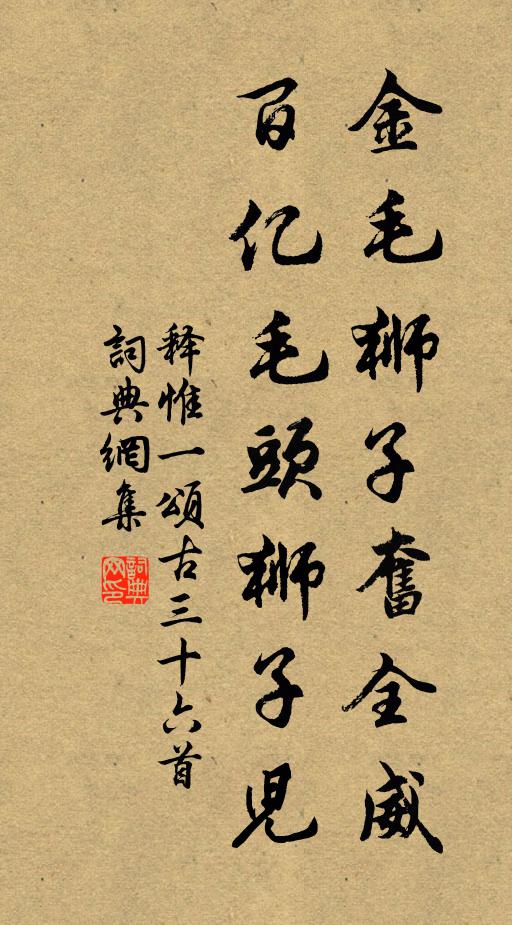 金毛獅子奮全威
百亿毛頭獅子児
释惟一頌古三十六首
詞典網集
詞典网印